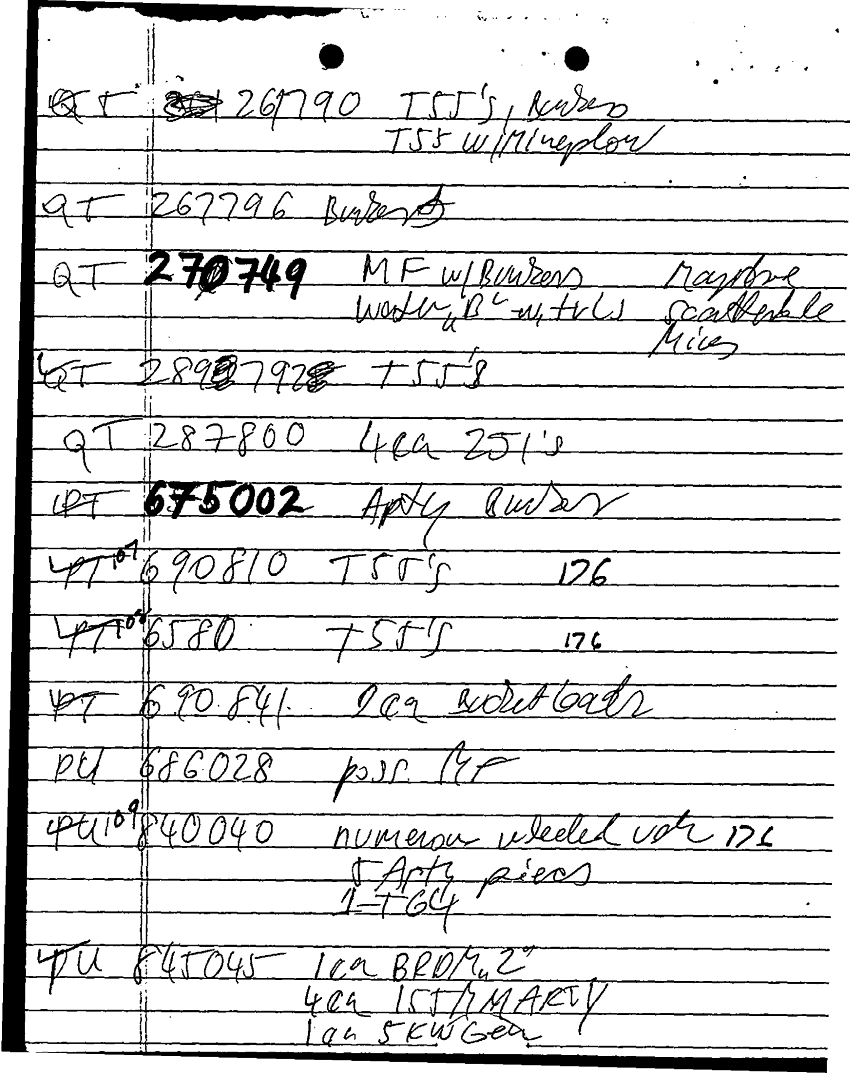 QT 267790 T55's, Bunkers
T55 w/Mineplow
QT 267796 Bunkers
QT 270749 MF w/Bunkers
water "B" w, trls scatterable
Mines
QT 289 792 T55's
QT 287800 4ea 251's
PT 675002 Arty Bunker
PT 107 690810 T55's 176
PT 108 6580 T55's 176
PT 690841 2ea Bucket loader
PU 686028 poss. MF
PU 109 840040 numerous wheeled veh 176
5 Arty pieces
1-T64
PU 845045 1ea BRDM "2"
4ea 155MM ARTY
1ea 5KW Gen